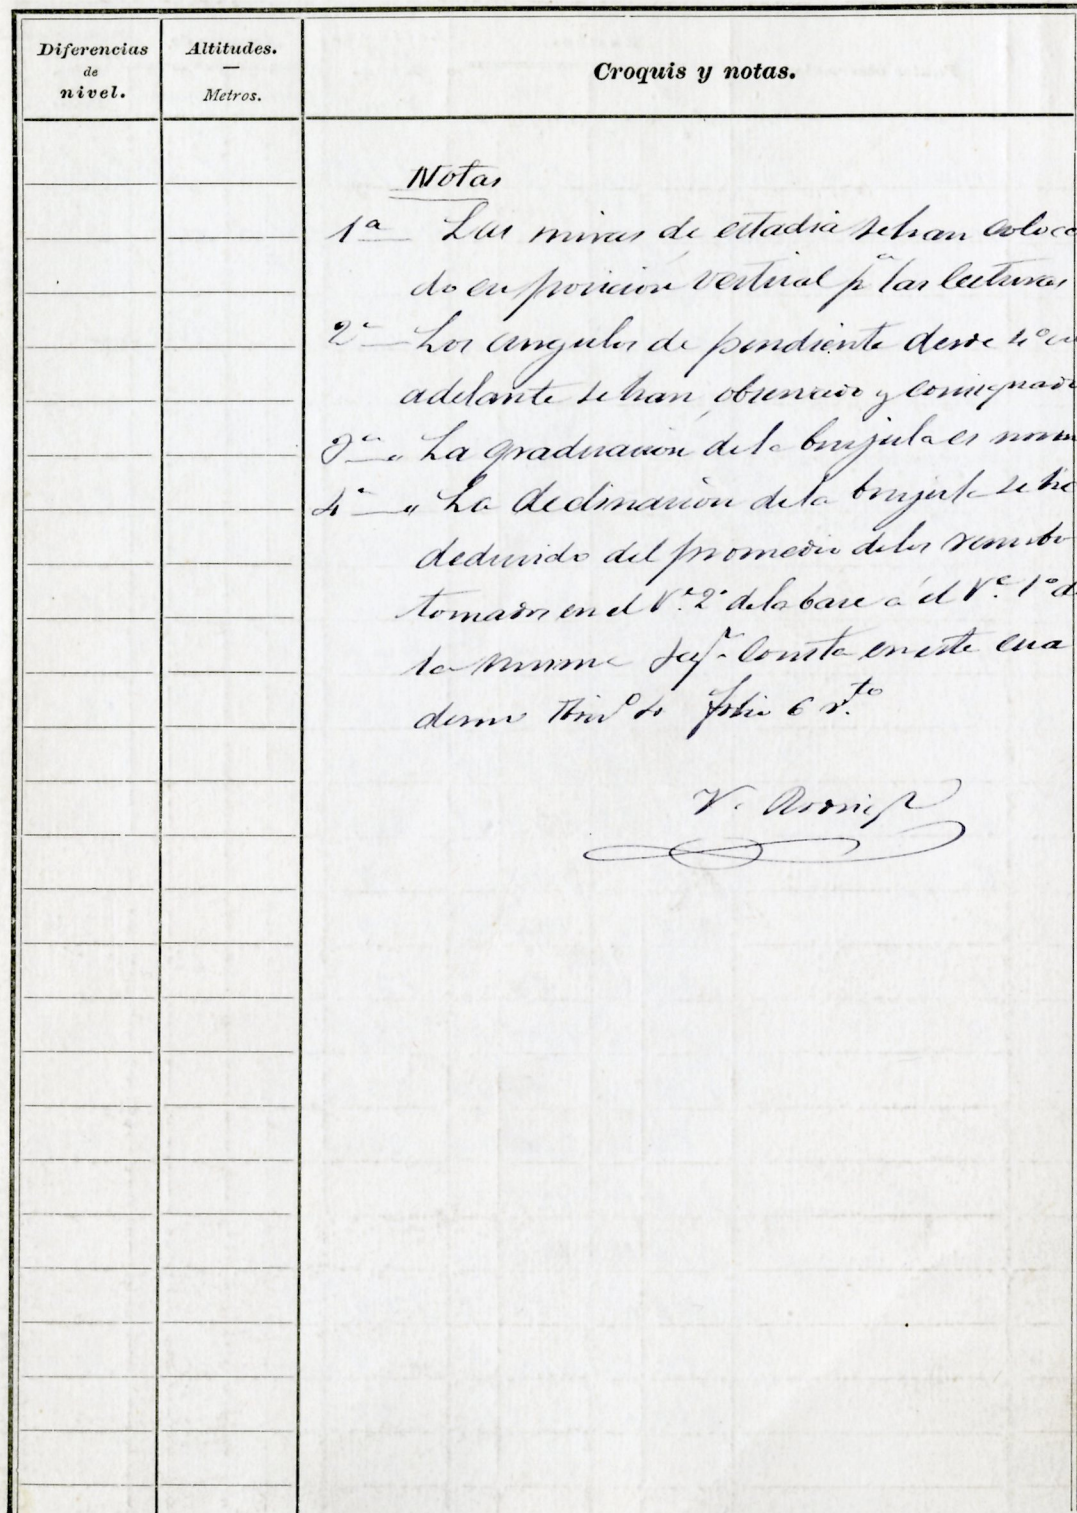 Diferencias
de
nivel.
Altitudes.
—
Metros.
Croquis y notas.
Notas
1ª Las miras de estadia se han coloca
do en posicion vertical pª las lecturas
2ª Los angulos de pendiente desde 4º en
adelante se han observado y consignado
3ª " La graduacion de la brujula es norm
4ª " La declinacion de la brujula se ha
deducido del promedio de los rumbo
tomados en el Vº. 2º de la base á el Vº. 1º d
la misma segⁿ consta en este cua
derno 4 folio 6 vto
V.